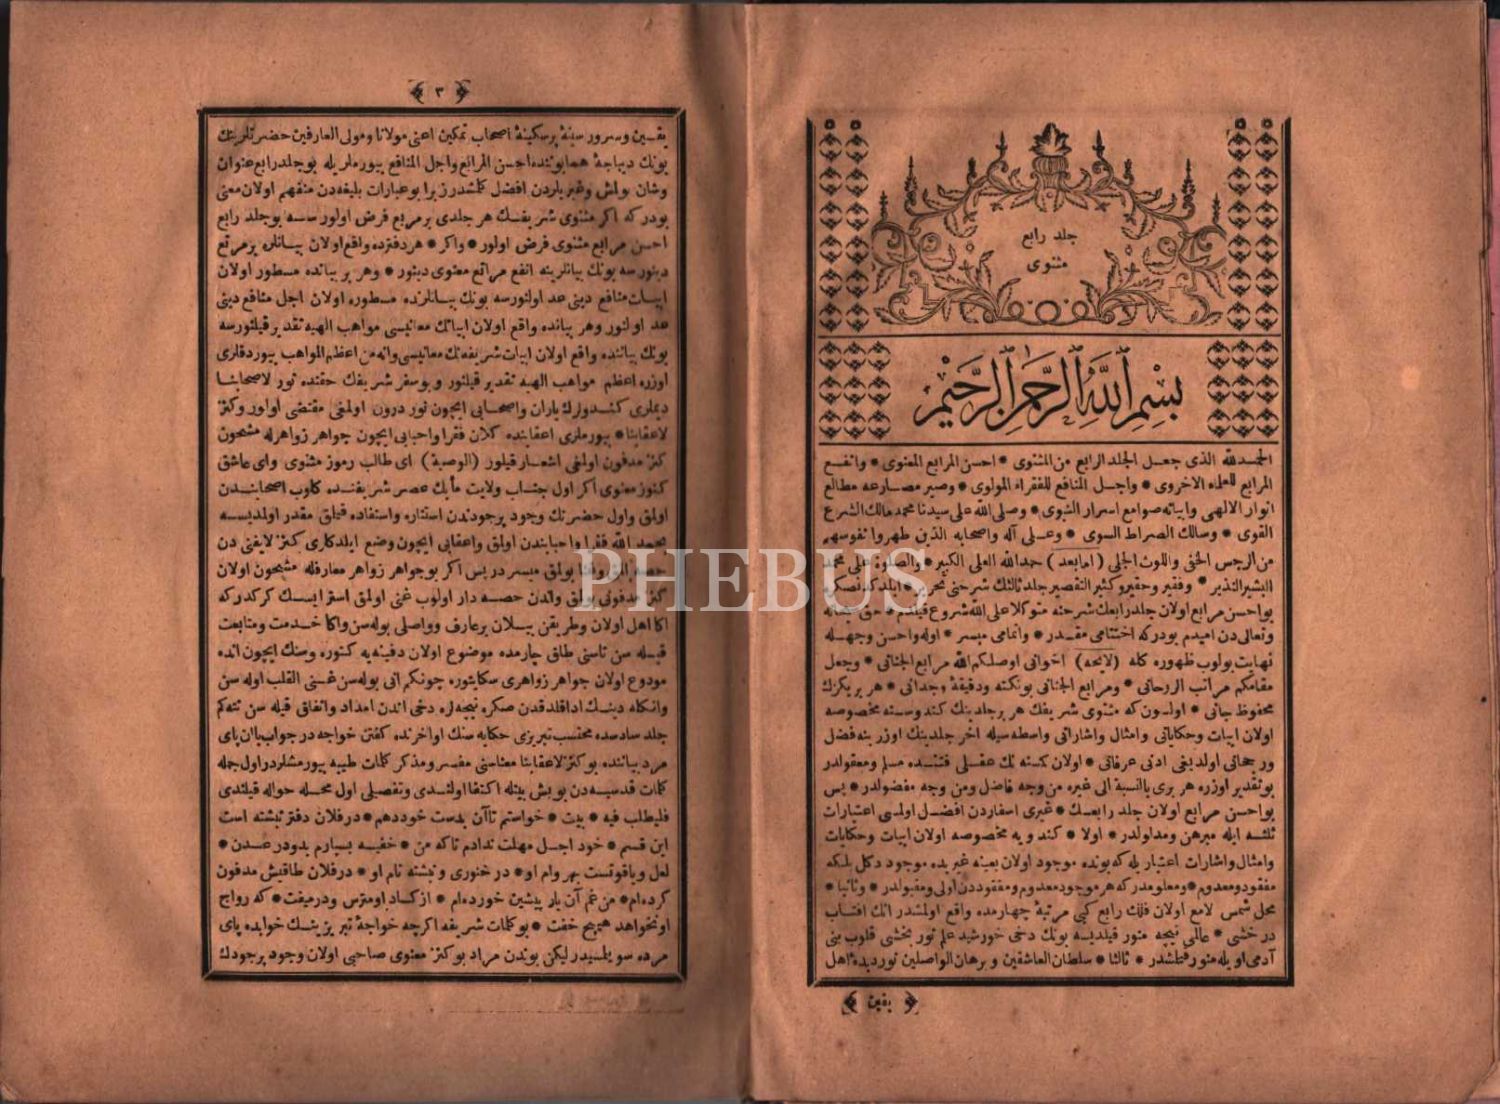 جلد رابع
مثنوى
بسم الله الرحمن الرحيم
الحمدلله الذى جعل الجلد الرابع من المثنوى * احسن المرابع المعنوى * وانفع
المرابع للعلماء الاخروى * واجل المنافع للفقراء المولوى * وصير مصارعه مطالع
انوار الالهى وابياته صوامع اسرار النبوى * وصلى الله على سيدنا محمد مالك الشرع
القوى * وسالك الصراط السوى * وعلى آله واصحابه الذين طهروا نفوسهم
من الرجس الخفى واللوث الجلى (امابعد) حمدالله العلى الكبير * والصلوة على محمد
البشير النذير * وفقير وحقير وكثير التقصير جلد ثالثك شرحنى تحرير * ايلدكدنصكره
بواحسن مرابع اولان جلد رابعك شرحنه متوكلا على الله شروع قيلدم * حق سبحانه
وتعالى دن اميدم بودركه اختتامى مقدر * واتمامى ميسر * اوله واحسن وجهله
نهايت بولوب ظهوره كله (لايحه) اخوانى اوصلكم الله مرابع الجنانى * وجعل
مقامكم مراتب الروحانى * ومرابع الجنانى بونكته ودقيقهٔ وجدانى * هر بريكزك
محفوظ جانى * اولسون كه مثنوى شريفك هر برجلدينك كندوسنه مخصوصه
اولان ابيات وحكاياتى وامثال واشاراتى واسطه سيله اخر جلدينك اوزرينه فضل
ورجحانى اولديغى ادنى عرفانى * اولان كسنه نك عقلى قتنده مسلم ومعقولدر
بوتقدير اوزره هر برى بالنسبة الى غيره من وجه فاضل ومن وجه مفضولدر * پس
بواحسن مرابع اولان جلد رابعك * غيرى اسفاردن افضل اولمسى اعتبارات
ثلثه ايله مبرهن ومدلولدر * اولا * كندويه مخصوصه اولان ابيات وحكايات
وامثال واشارات اعتباريله كه بونده موجود اولان بعينه غيريده موجود دكل بلكه
مفقود ومعدوم * ومعلومدركه هر موجود معدوم ومفقوددن اولى ومقبولدر * وثانيا *
محل شمس لامع اولان فلك رابع كبى مرتبهٔ چهارمده واقع اولمشدر انك افتاب
درخشى * عالمى نيجه منور قيلديسه بونك دخى خورشيد علم نور بخشى قلوب بنى
آدمى اويله منور قيلمشدر * ثالثا * سلطان العاشقين وبرهان الواصلين نورديدهٔ اهل
يقين
٣
يقين وسرور سينهٔ پرسكينهٔ اصحاب تمكين اعنى مولانا ومولى العارفين حضرتلرينك
بونك ديباجهٔ همايوننده احسن المرابع واجل المنافع بيورملريله بوجلد رابع عنوان
وشان بولمش وغيريلردن افضل كلمشدر زيرا بوعبارات بليغه دن منفهم اولان معنى
بودر كه اكر مثنوى شريفك هر جلدى بر مربع فرض اولورسه بوجلد رابع
احسن مرابع مثنوى فرض اولور * واكر * هر دفترده واقع اولان بيانلره برمرتع
دينورسه بونك بيانلرينه انفع مراتع معنوى دينور * وهر بر بيانده مسطور اولان
ابيات منافع دينى عد اولنورسه بونك بيانلرنده مسطوره اولان اجل منافع دينى
عد اولنور وهر بيانده واقع اولان ابياتك معانيسى مواهب الهيه تقدير قيلنورسه
بونك بياننده واقع اولان ابيات شريفه نك معانيسى وانه من اعظم المواهب بيوردقلرى
اوزره اعظم مواهب الهيه تقدير قيلنور وبوسفر شريفك حقنده نور لاصحابنا
ديملرى كندولرك ياران واصحابى ايچون نور درون اولمغى مقتضى اولور وكنز
لاعقابنا * بيورملرى اعقابنده كلان فقرا واحبابى ايچون جواهر زواهرله مشحون
كنز مدفون اولمغى اشعار قيلور (الوصية) اى طالب رموز مثنوى واى عاشق
كنوز معنوى اكر اول جناب ولايت مأبك عصر شريفنده كلوب اصحابندن
اولمق واول حضرتك وجود پرجودندن استناره واستفاده قيلمق مقدر اولمديسه
بحمد الله فقرا واحبابندن اولمق واعقابى ايچون وضع ايلدكلرى كنز لايفنى دن
كنز مدفونى بولمق واندن حصه دار اولوب غنى اولمق استرايسك كركدركه
اكا اهل اولان وطريقن بيلان برعارف وواصلى بوله سن واكا خدمت ومتابعت
قيله سن تاسنى طاق چارمده موضوع اولان دفينه يه كتوره وسنك ايچون انده
مودوع اولان جواهر زواهرى سكايتوره چونكم انى بوله سن غنى القلب اوله سن
وانكاه دينك اداقلدقدن صكره نيجه لره دخى اندن امداد وانفاق قيله سن تته كم
جلد سادسده محتسب تبريزى حكايه سنك اواخرنده كفتن خواجه در جواب باان پاى
مرد بياننده بو كنز لاعقابنا معناسنى مفسر ومذكر كلمات طيبه بيورمشلردر اول جمله
كلمات قدسيه دن بوبش بيتله اكتفا اولندى وتفصيلى اول محله حواله قيلندى
فليطلب فيه * بيت * خواستم تاآن بدست خوددهم * در فلان دفتر نبشته است
اين قسم * خود اجل مهلت ندادم تاكه من * خفيه بسپارم بدو در عدن *
لعل وياقوتست بهر وام او * در خنورى ونبشته نام او * در فلان طاقيش مدفون
كرده ام * من غم آن يار پيشين خورده ام *
اونخواهد هيچ خفت * بوكلمات شريفه اكرچه خواجهٔ تبريزينك خوابده پاى
مرده سويلمسيدر ليكن بوندن مراد بوكنز معنوى صاحبى اولان وجود پرجودك
PHEBUS